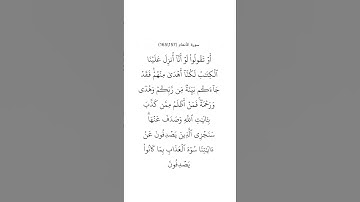 سورة الأنعام (165/157)
أَوْ تَقُولُوا۟ لَوْ أَنَّآ أُنزِلَ عَلَيْنَا
ٱلْكِتَـٰبُ لَكُنَّآ أَهْدَىٰ مِنْهُمْ ۚ فَقَدْ
جَآءَكُم بَيِّنَةٌ مِّن رَّبِّكُمْ وَهُدًى
وَرَحْمَةٌ ۚ فَمَنْ أَظْلَمُ مِمَّن كَذَّبَ
بِـَٔايَـٰتِ ٱللَّهِ وَصَدَفَ عَنْهَا ۗ
سَنَجْزِى ٱلَّذِينَ يَصْدِفُونَ عَنْ
ءَايَـٰتِنَا سُوٓءَ ٱلْعَذَابِ بِمَا كَانُوا۟
يَصْدِفُونَ